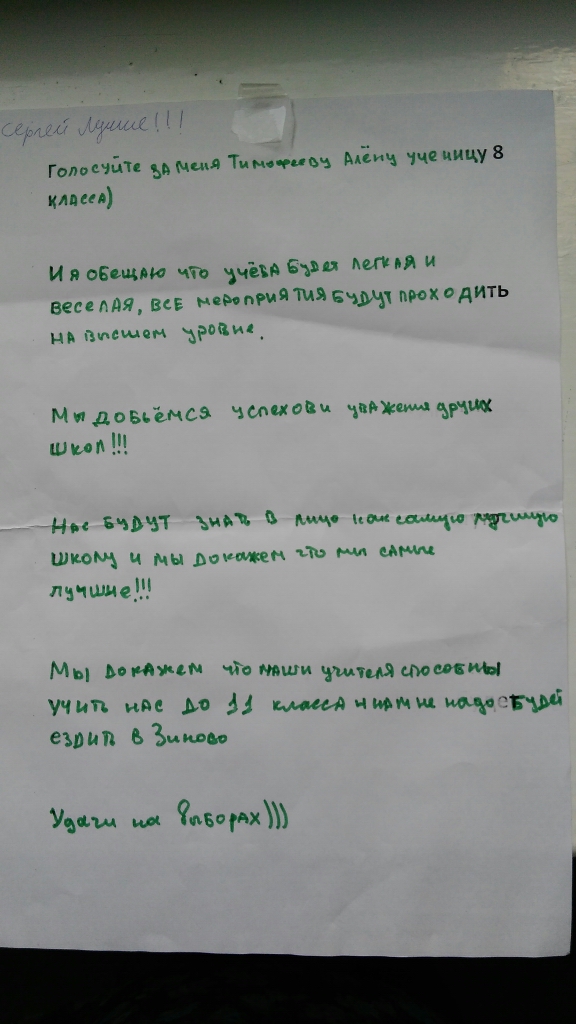 Сергей Лучше!!!
Голосуйте за меня Тимофееву Алёну ученицу 8
класса)
И я обещаю что учёба будет легкая и
веселая, все мероприятия будут проходить
на высшем уровне.
Мы добьёмся успехови уважение других
школ!!!
Нас будут знать в лицо как самую лучшую
школу и мы докажем что мы самые
лучшие!!!
Мы докажем что наши учителя способны
учить нас до 11 класса и нам не надо будет
ездить в Зиново
Удачи на выборах)))